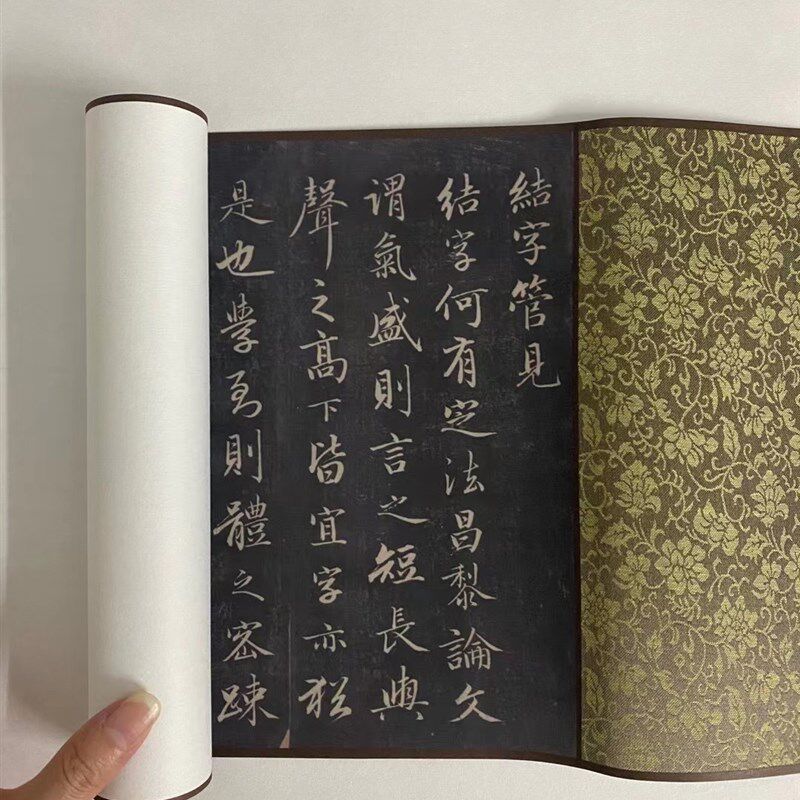 結字管見
結字何有定法昌黎論文
謂氣盛則言之短長與
聲之高下皆宜字亦猶
是也學至則體之密疎